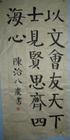 以文會友天下
士見賢思齊四
海心
陳治八歲書